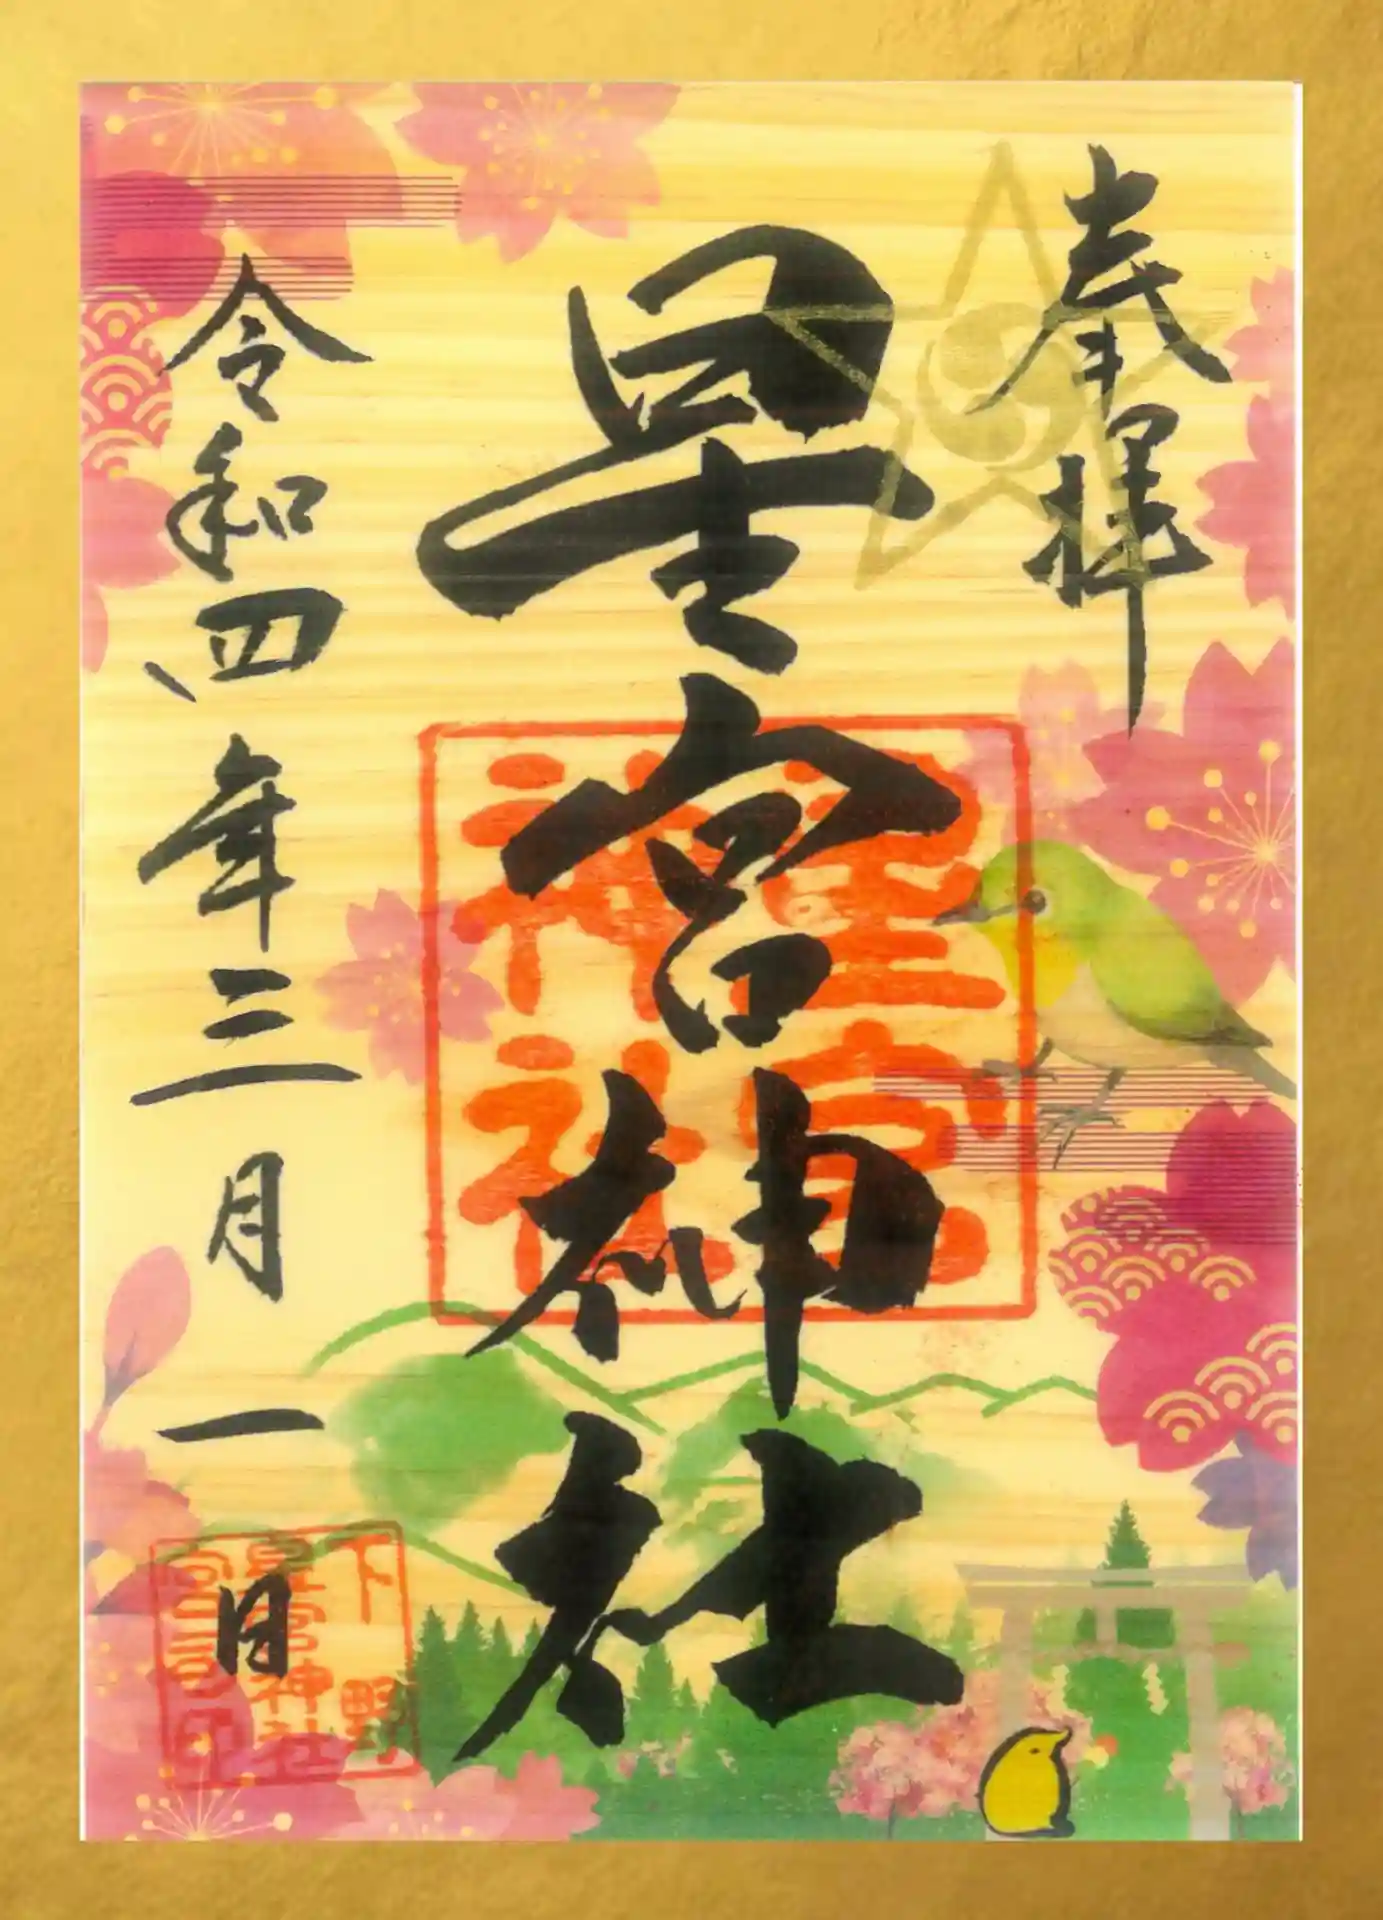 奉拝
星宮神社
星宮
神社
令和四年三月一日
下野
星宮神社
宮司印